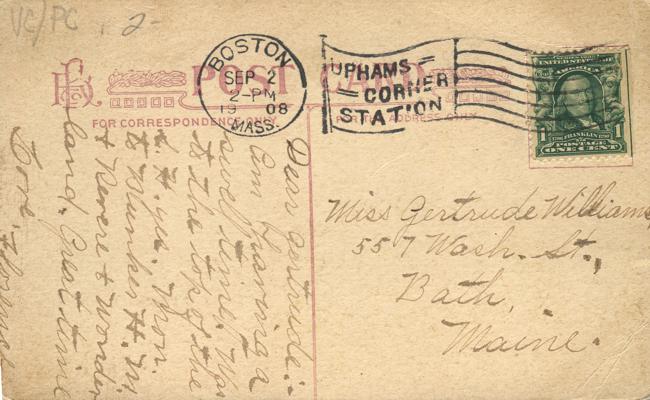 VC/PC . 2-
POST CARD
FOR CORRESPONDENCE ONLY
ADDRESS ONLY
BOSTON
SEP 2
2-PM
19 08
MASS.
UPHAMS
CORNER
STATION
UNITED STATES OF
AMERICA
1 FRANKLIN 1
POSTAGE
ONE CENT
Dear Gertrude:-
Am having a
swell time. Was
to the top of the
S. H. yes. Mon.
to Bunker H. M
& Revere & Wonder
land. Great time
Love, Florence
Miss Gertrude Williams
557 Wash. St.,
Bath,
Maine.